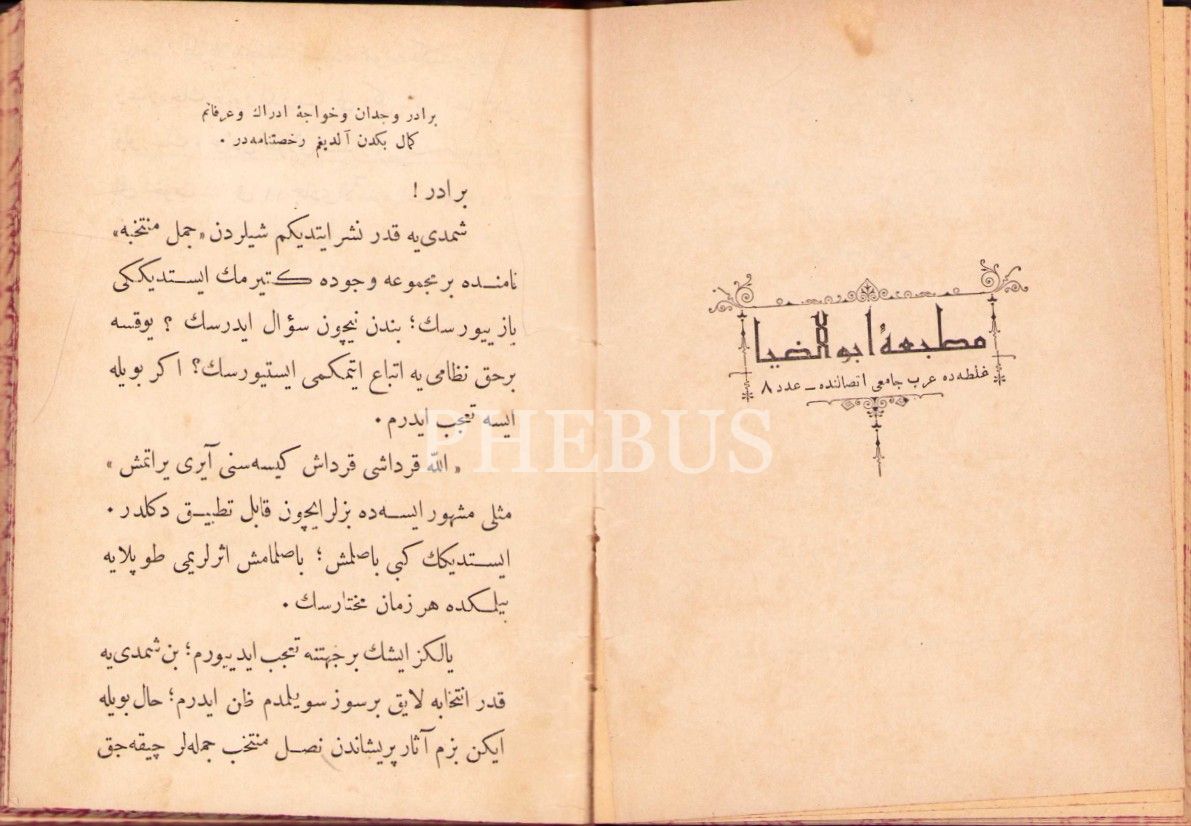 مطبعۀ ابوالضيا
غلطه‌ده عرب جامعی اتصالنده ـ عدد ٨
برادر وجدان وخواجۀ ادراك وعرفانم
كمال بكدن آلديغم رخصتنامه‌در .
برادر !
شمدی‌يه قدر نشر ايتديكم شيلردن «جمل منتخبه»
نامنده بر مجموعه وجوده كتيرمك ايستديككی
يازييورسك؛ بندن نيچون سؤال ايدرسك ؟ يوقسه
برحق نظامی‌يه اتباع ايتمكمی ايستيورسك؟ اكر بويله
ايسه تعجب ايدرم .
« الله قرداشی قرداش كيسه‌سنی آيری يراتمش »
مثلی مشهور ايسه‌ده بزلرايچون قابل تطبيق دكلدر .
ايستديكك كبی باصلمش ؛ باصلمامش اثرلريمی طوپلايه
بيلمكده هر زمان مختارسك .
يالكز ايشك برجهتنه تعجب ايدييورم؛ بن شمدی‌يه
قدر انتخابه لايق برسوز سويلمدم ظن ايدرم؛ حال بويله
ايكن بزم آثار پريشاندن نصل منتخب جمله‌لر چيقه‌جق
PHEBUS